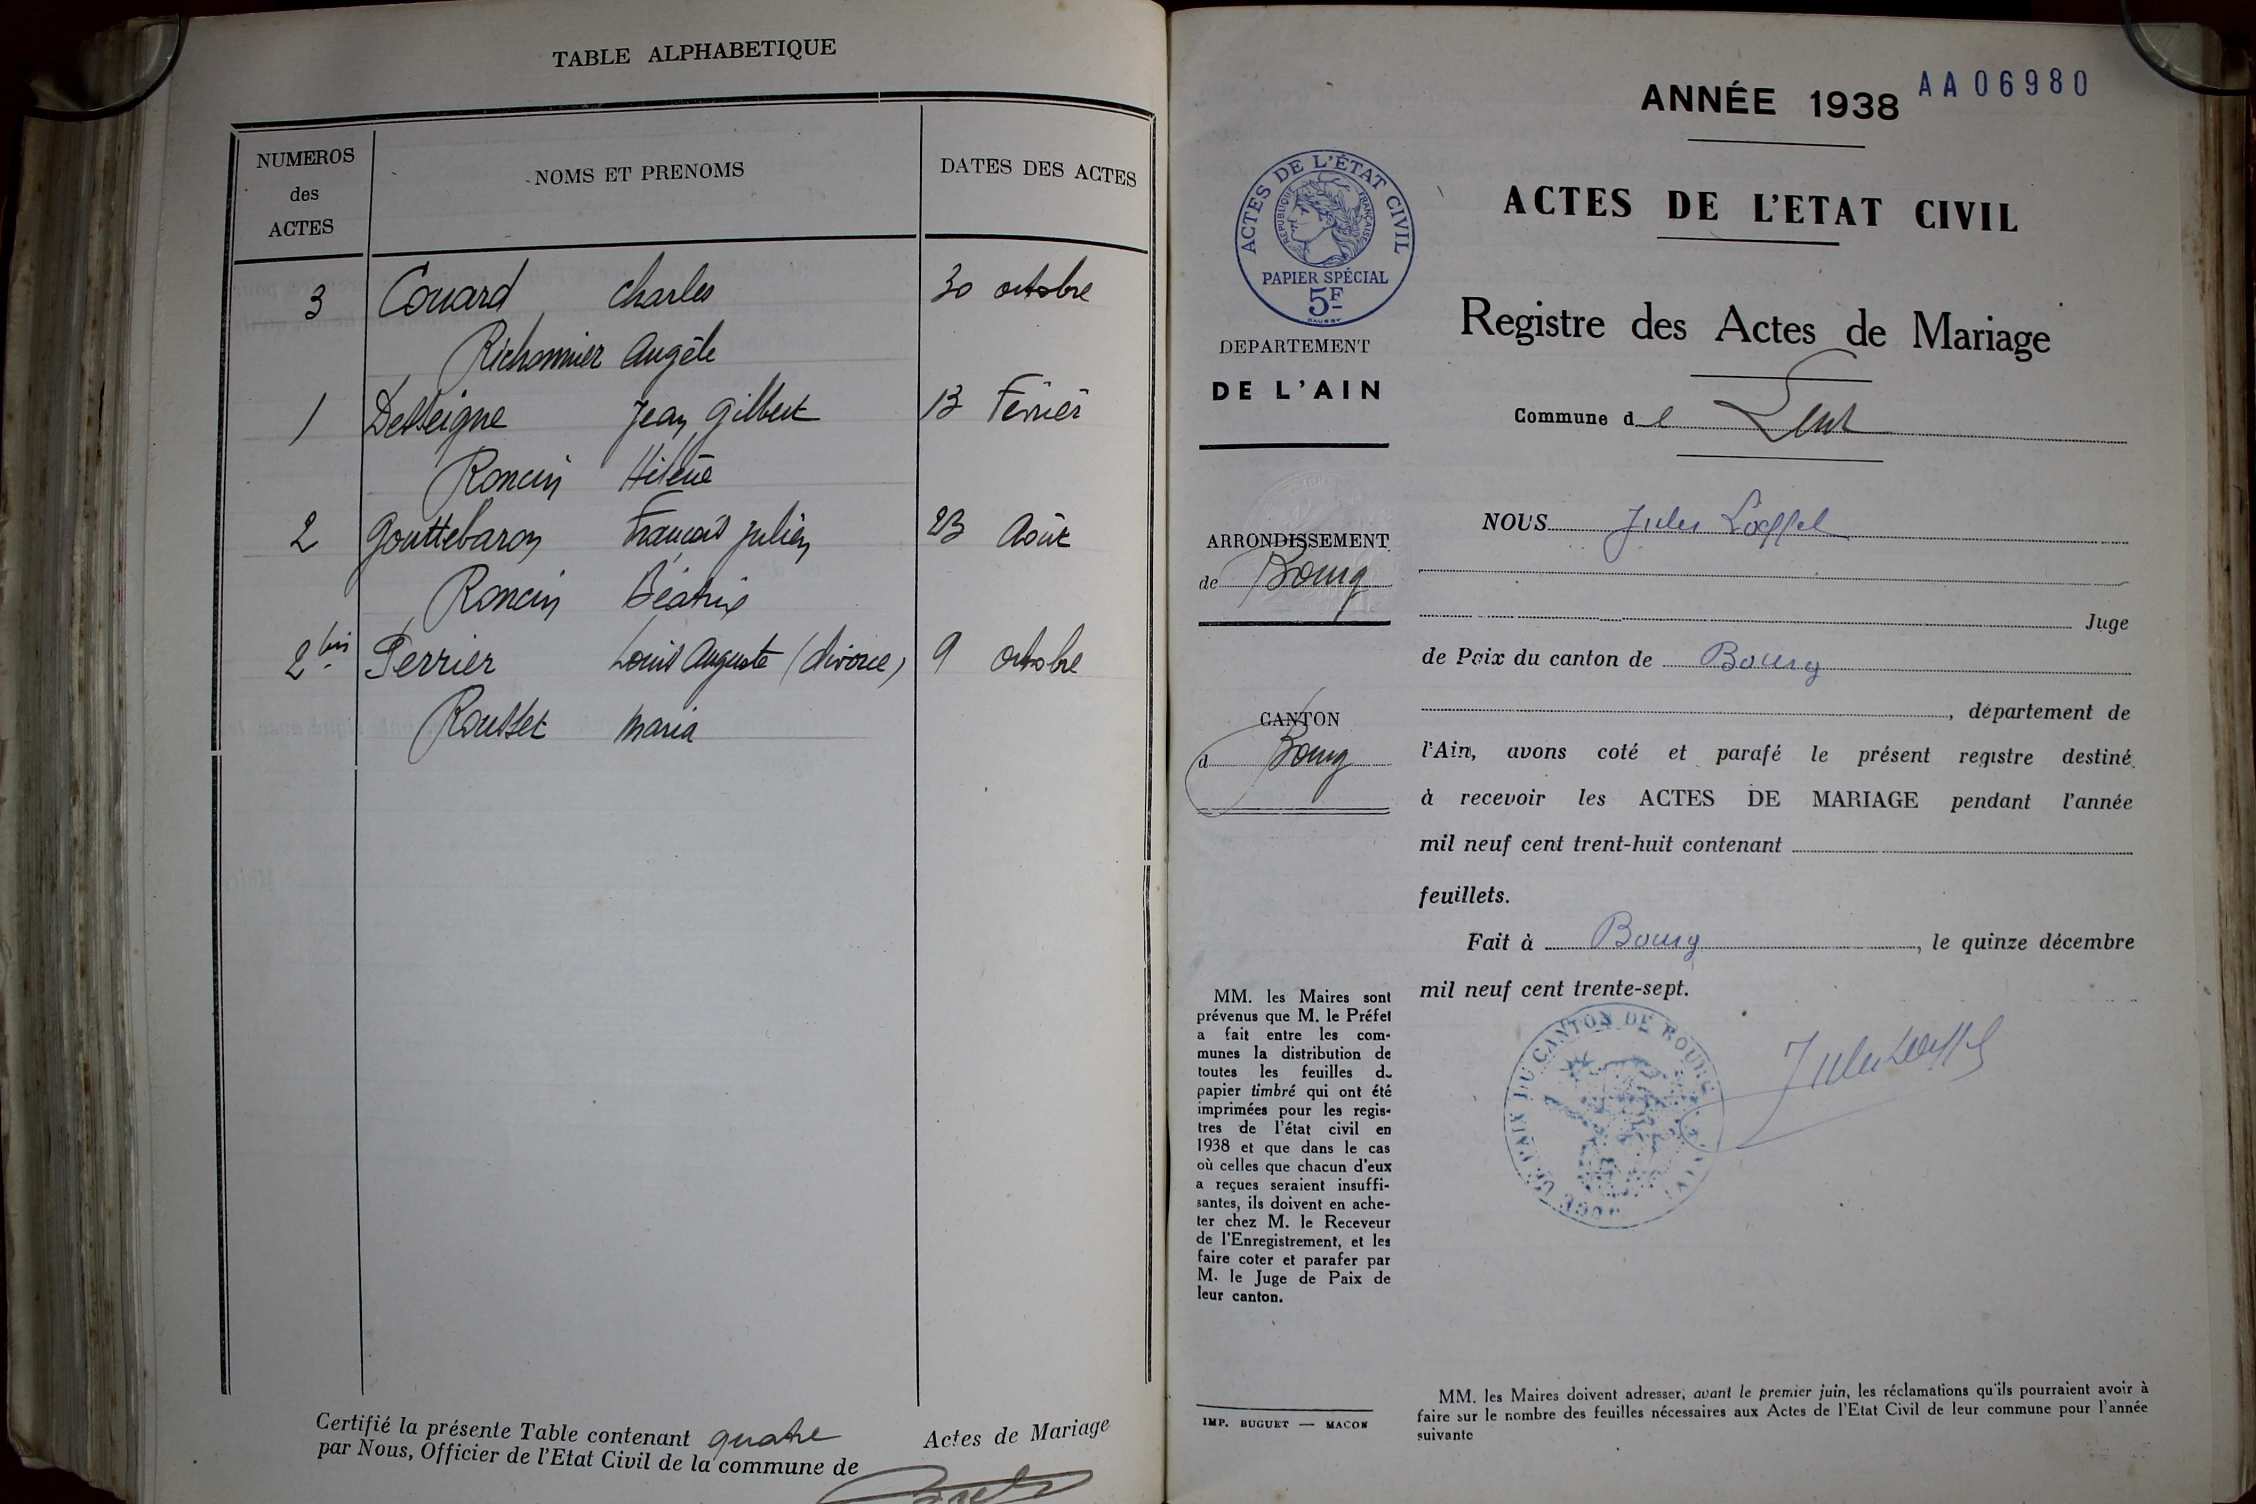 TABLE ALPHABETIQUE
NUMEROS
des
ACTES
NOMS ET PRENOMS
DATES DES ACTES
3 Couard Charles 30 octobre
Richonnier Angèle
1 Desseigne Jean Gilbert 13 Février
Roncin Hélène
2 Gouttebaron François Julien 23 Août
Roncin Béatrix
2 bis Perrier Louis Auguste (divorce) 9 octobre
Rousset Maria
Certifié la présente Table contenant quatre Actes de Mariage
par Nous, Officier de l'Etat Civil de la commune de
ANNÉE 1938
AA06980
ACTES DE L'ÉTAT CIVIL
RÉPUBLIQUE FRANÇAISE
PAPIER SPÉCIAL
5F
ACTES DE L'ETAT CIVIL
Registre des Actes de Mariage
DEPARTEMENT
DE L'AIN
Commune de Lent
ARRONDISSEMENT
de Bourg
CANTON
d Bourg
NOUS Jules Loeffel
Juge
de Paix du canton de Bourg
, département de
l'Ain, avons coté et parafé le présent registre destiné
à recevoir les ACTES DE MARIAGE pendant l'année
mil neuf cent trent-huit contenant
feuillets.
Fait à Bourg, le quinze décembre
mil neuf cent trente-sept.
JUGE DE PAIX DU CANTON DE BOURG
Jules Loeffel
MM. les Maires sont
prévenus que M. le Préfet
a fait entre les com-
munes la distribution de
toutes les feuilles de
papier timbré qui ont été
imprimées pour les regis-
tres de l'état civil en
1938 et que dans le cas
où celles que chacun d'eux
a reçues seraient insuffi-
santes, ils doivent en ache-
ter chez M. le Receveur
de l'Enregistrement, et les
faire coter et parafer par
M. le Juge de Paix de
leur canton.
IMP. BUGUET — MACON
MM. les Maires doivent adresser, avant le premier juin, les réclamations qu'ils pourraient avoir à
faire sur le nombre des feuilles nécessaires aux Actes de l'Etat Civil de leur commune pour l'année
suivante